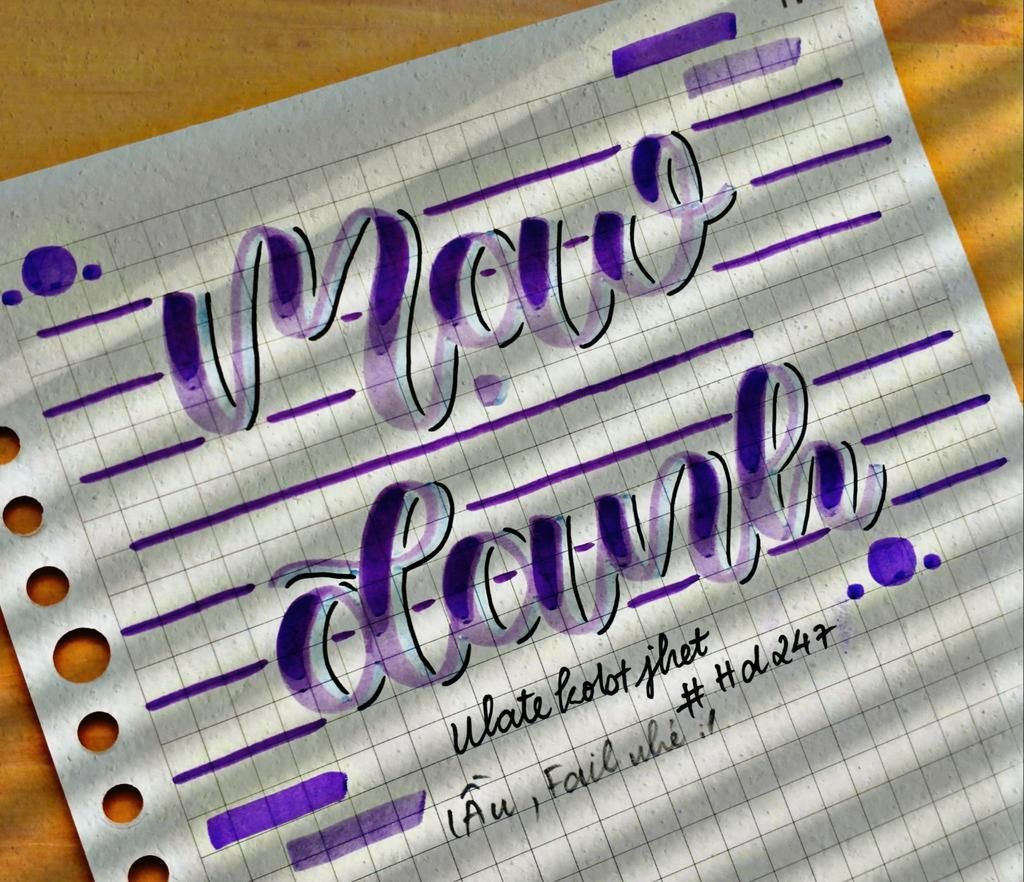 Mạo
danh
Ulate kolot jhet
# Hd247
(Âu , Fail nhé !!